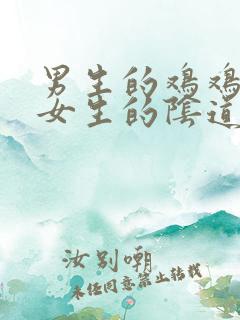 男生的鸡鸡
女生的阴道
汝别嘲
未经同意禁止转载